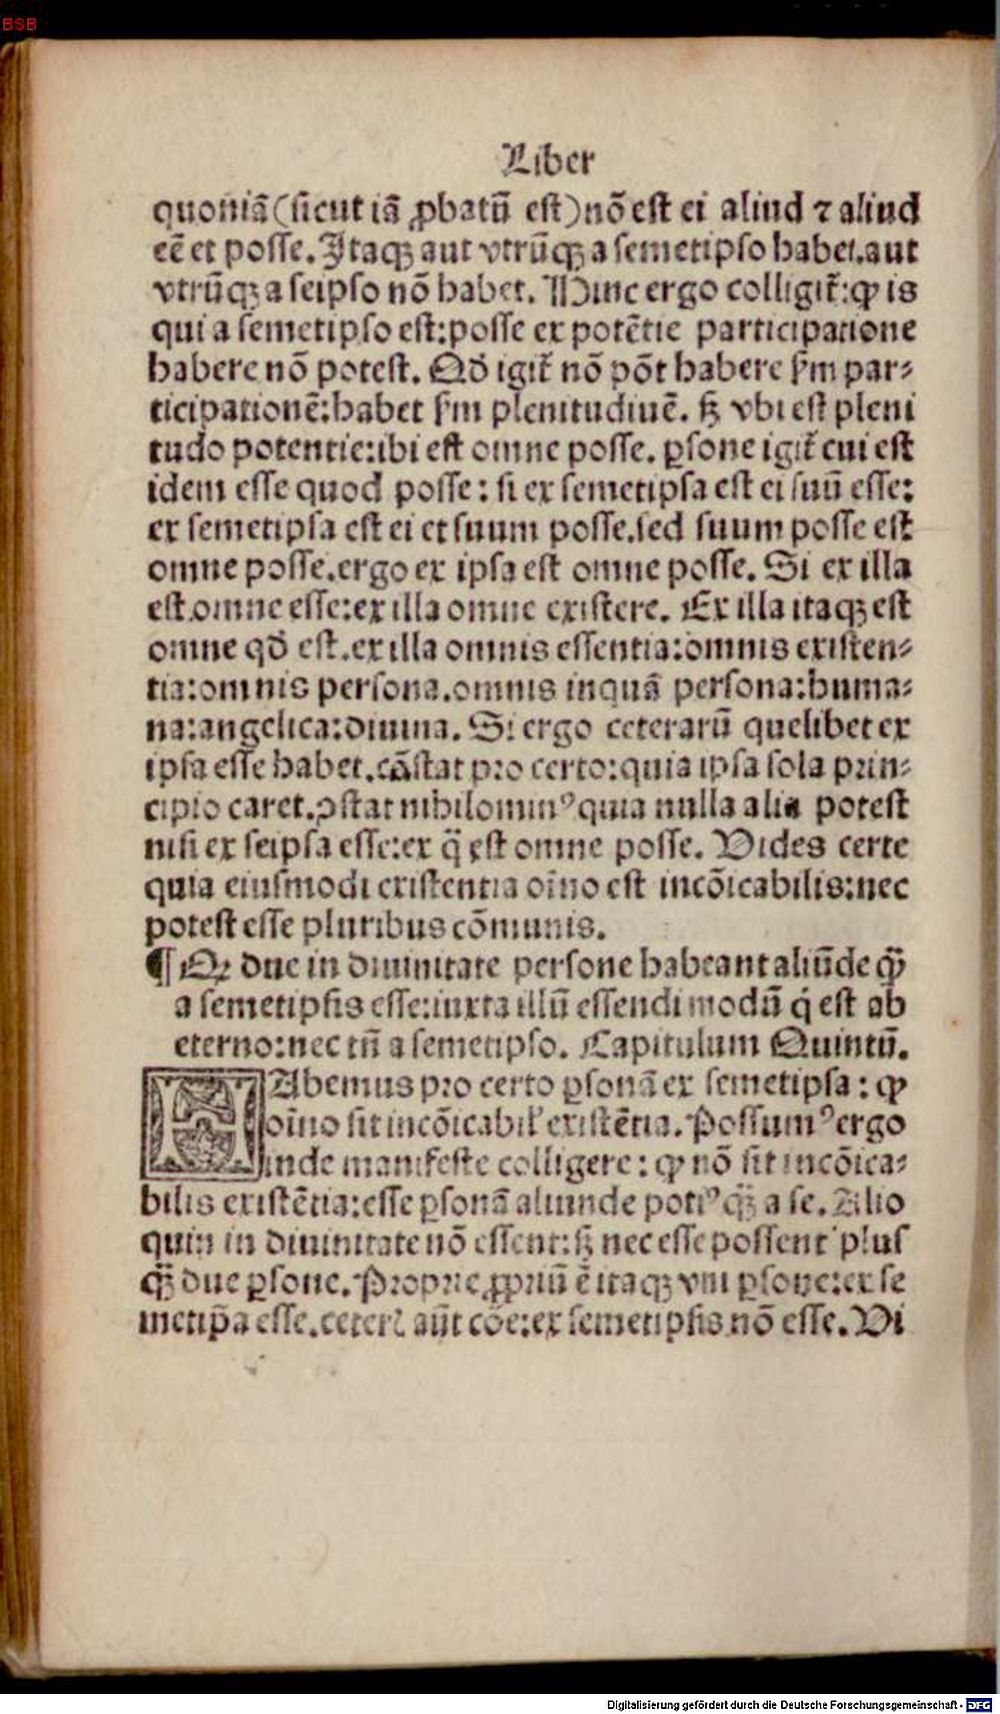 BSB
Liber
quoniā (sicut iā ꝓbatū est) nō est ei aliud ⁊ aliud
eē et posse. Itaqꝫ aut vtrūqꝫ a semetipso habet. aut
vtrūqꝫ a seipso nō habet. Hinc ergo colligit̄: ꝙ is
qui a semetipso est: posse ex potētie participatione
habere nō potest. Qd̄ igit̄ nō pōt habere s̄m par⸗
ticipationē: habet s̄m plenitudinē. sꝫ vbi est pleni
tudo potentie: ibi est omne posse. ꝑsone igit̄ cui est
idem esse quod posse: si ex semetipsa est ei suū esse:
ex semetipsa est ei et suum posse. sed suum posse est
omne posse. ergo ex ipsa est omne posse. Si ex illa
est omne esse: ex illa omne existere. Ex illa itaqꝫ est
omne qd̄ est. ex illa omnis essentia: omnis existen⸗
tia: omnis persona. omnis inquā persona: huma⸗
na: angelica: diuina. Si ergo ceterarū quelibet ex
ipsa esse habet. cōstat pro certo: quia ipsa sola prin⸗
cipio caret. ꝯstat nihilominꝰ quia nulla alia potest
nisi ex seipsa esse: ex q̄ est omne posse. Vides certe
quia eiusmodi existentia oīno est incōicabilis: nec
potest esse pluribus cōmunis.
¶ Qꝫ due in diuinitate persone habeant aliūde ꝙ̄
a semetipsis esse: iuxta illū essendi modū q̇ est ab
eterno: nec tn̄ a semetipso. Capitulum Quintū.
HAbemus pro certo ꝑsonā ex semetipsa: ꝙ
oīno sit incōicabil̛ existētia. Possumꝰ ergo
inde manifeste colligere: ꝙ nō sit incōica⸗
bilis existētia: esse ꝑsonā aliunde potiꝰ qꝫ̄ a se. Alio
quin in diuinitate nō essent: sꝫ nec esse possent plus
qꝫ̄ due ꝑsone. Proprie ꝓpriū ē itaqꝫ vni ꝑsone: ex se
metip̄a esse. ceterꝝ aūt cōe: ex semetipsis nō esse. Vi
Digitalisierung gefördert durch die Deutsche Forschungsgemeinschaft - DFG